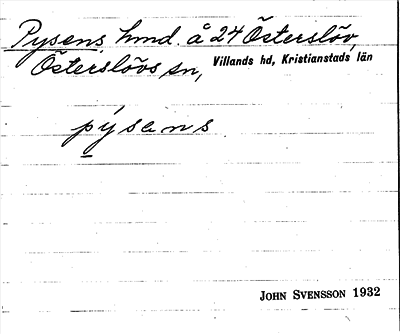 Pysens hmd. å 24 Österslöv,
Österslövs sn, Villands hd, Kristianstads län
pýsens
JOHN SVENSSON 1932